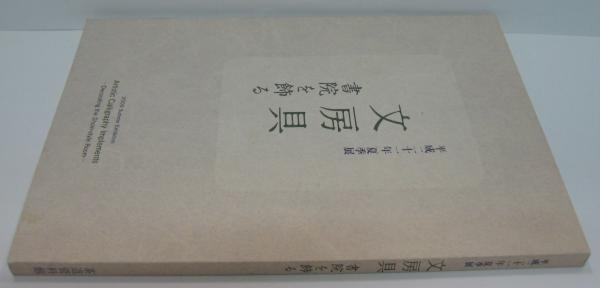 平成二十一年夏季展
文房具
書院を飾る
2009 Summer Exhibition
Artistic Calligraphy Implements
- Decorating the Shoin-style Room -
平成二十一年夏季展 文房具 書院を飾る 茶道資料館